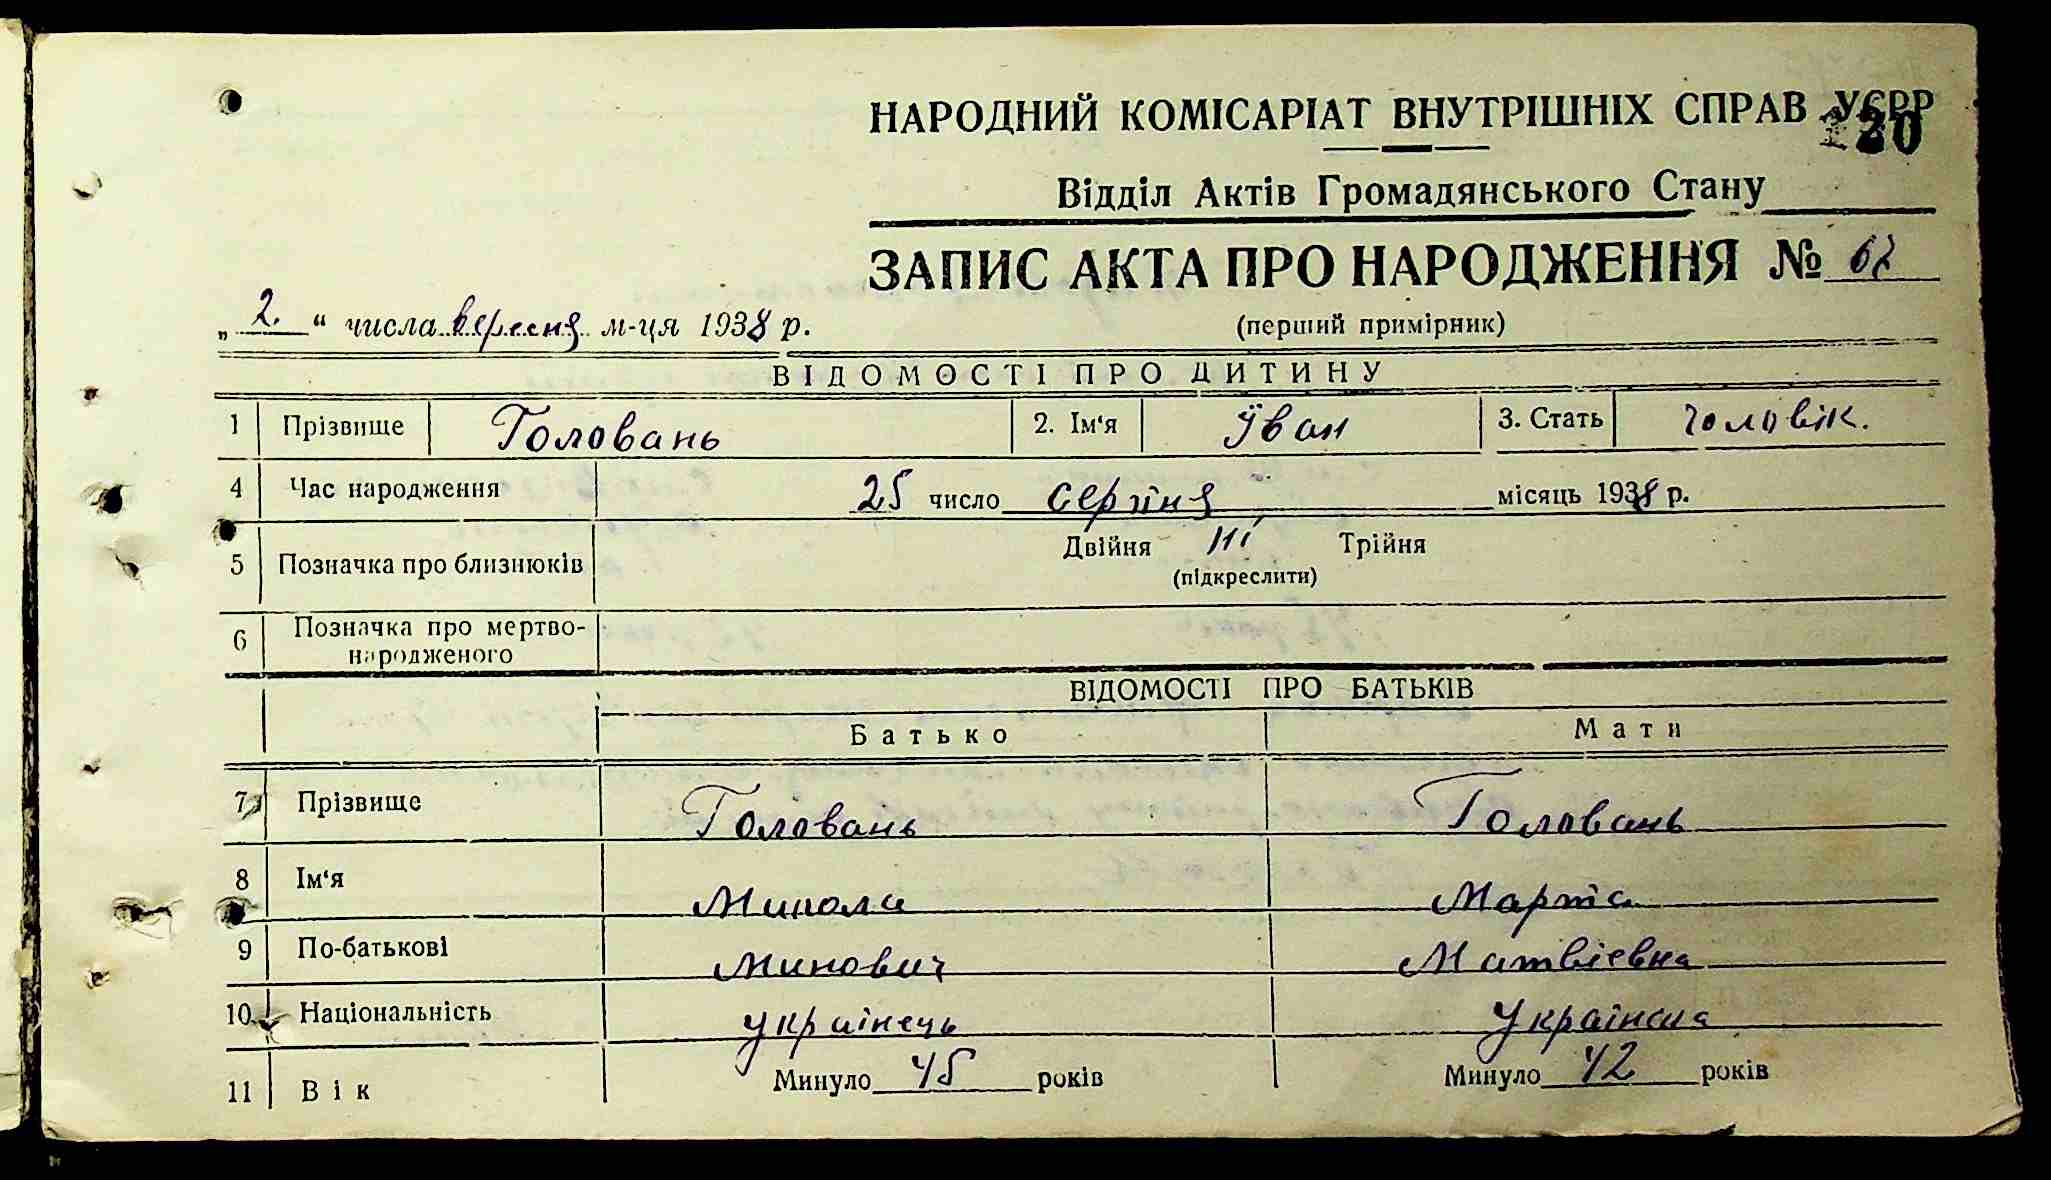 НАРОДНИЙ КОМІСАРІАТ ВНУТРІШНІХ СПРАВ УСРР
20
Відділ Актів Громадянського Стану
ЗАПИС АКТА ПРО НАРОДЖЕННЯ № 62
„ 2. “ числа вересня м-ця 1938 р.
(перший примірник)
ВІДОМОСТІ ПРО ДИТИНУ
1 Прізвище Головань 2. Ім‘я Їван 3. Стать чоловік.
4 Час народження 25 число серпня місяць 1938 р.
5 Позначка про близнюків Двійня ні Трійня
(підкреслити)
6 Позначка про мертво-
народженого
ВІДОМОСТІ ПРО БАТЬКІВ
Батько Мати
7 Прізвище Головань Головань
8 Ім‘я Микола Марта
9 По-батькові Минович Матвієвна
10 Національність українець Українка
11 Вік Минуло 45 років Минуло 42 років